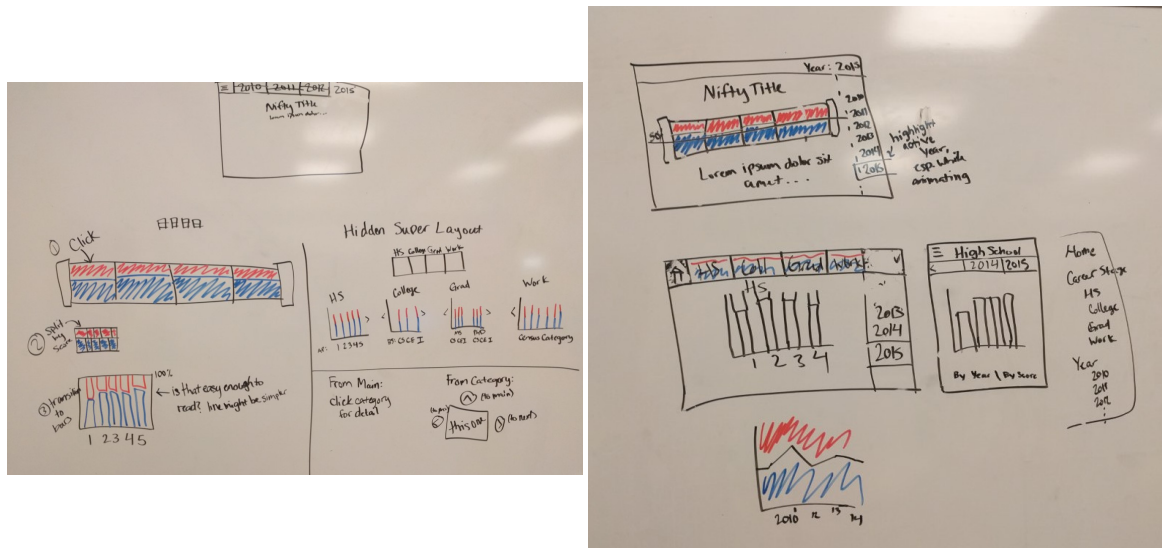 ≡ 2010 2011 2012 2015
Nifty Title
Lorem ipsum dolor...
① Click
② Split
by
Score
③ transition
to
bars
100%
← is that easy enough to
read? line might be simpler
1 2 3 4 5
Hidden Super Layout
HS College Grad Work
HS
1 2 3 4 5
College
Grad
Work
Census Category
From Main:
Click category
for detail
From Category:
(to main)
this one
(to next)
Year: 2015
Nifty Title
50
Lorem ipsum dolor sit
amet...
2010
2011
2012
2013
2014
2015
highlight
active
year,
esp. while
animating
HS
1 2 3 4
'2013
2014
2015
High School
2014 2015
By Year \ By Score
Home
Career Stage
HS
College
Grad
Work
Year
2010
2011
2012
2010 12 13 14